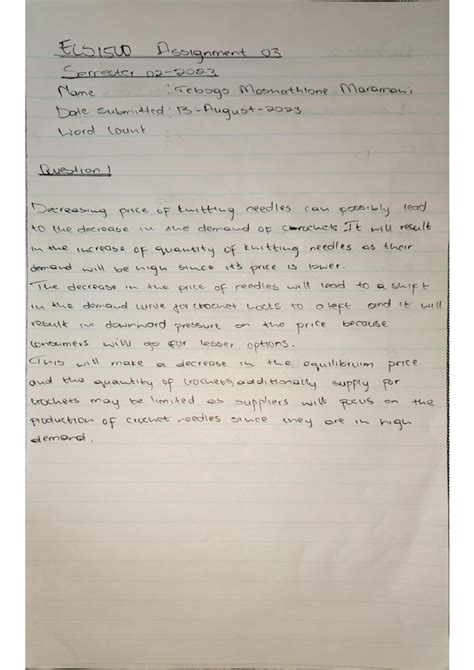 ECS1500 Assignment 03
Semester 02-2023
Name : Tebogo Moshathlone Maramani
Date submitted : 13-August-2023
Word Count :
Question 1
Decreasing price of knitting needles can possibly lead
to the decrease in the demand of crochets. It will result
in the increase of quantity of knitting needles as their
demand will be high since it's price is lower.
The decrease in the price of needles will lead to a shift
in the demand curve for crochet hocts to a left and it will
result in downward pressure on the price because
consumers will go for lesser options.
This will make a decrease in the equilibruim price
and the quantity of crochets, additionally supply for
crockets may be limited as suppliers will focus on the
production of crocket needles since they are in high
demand.